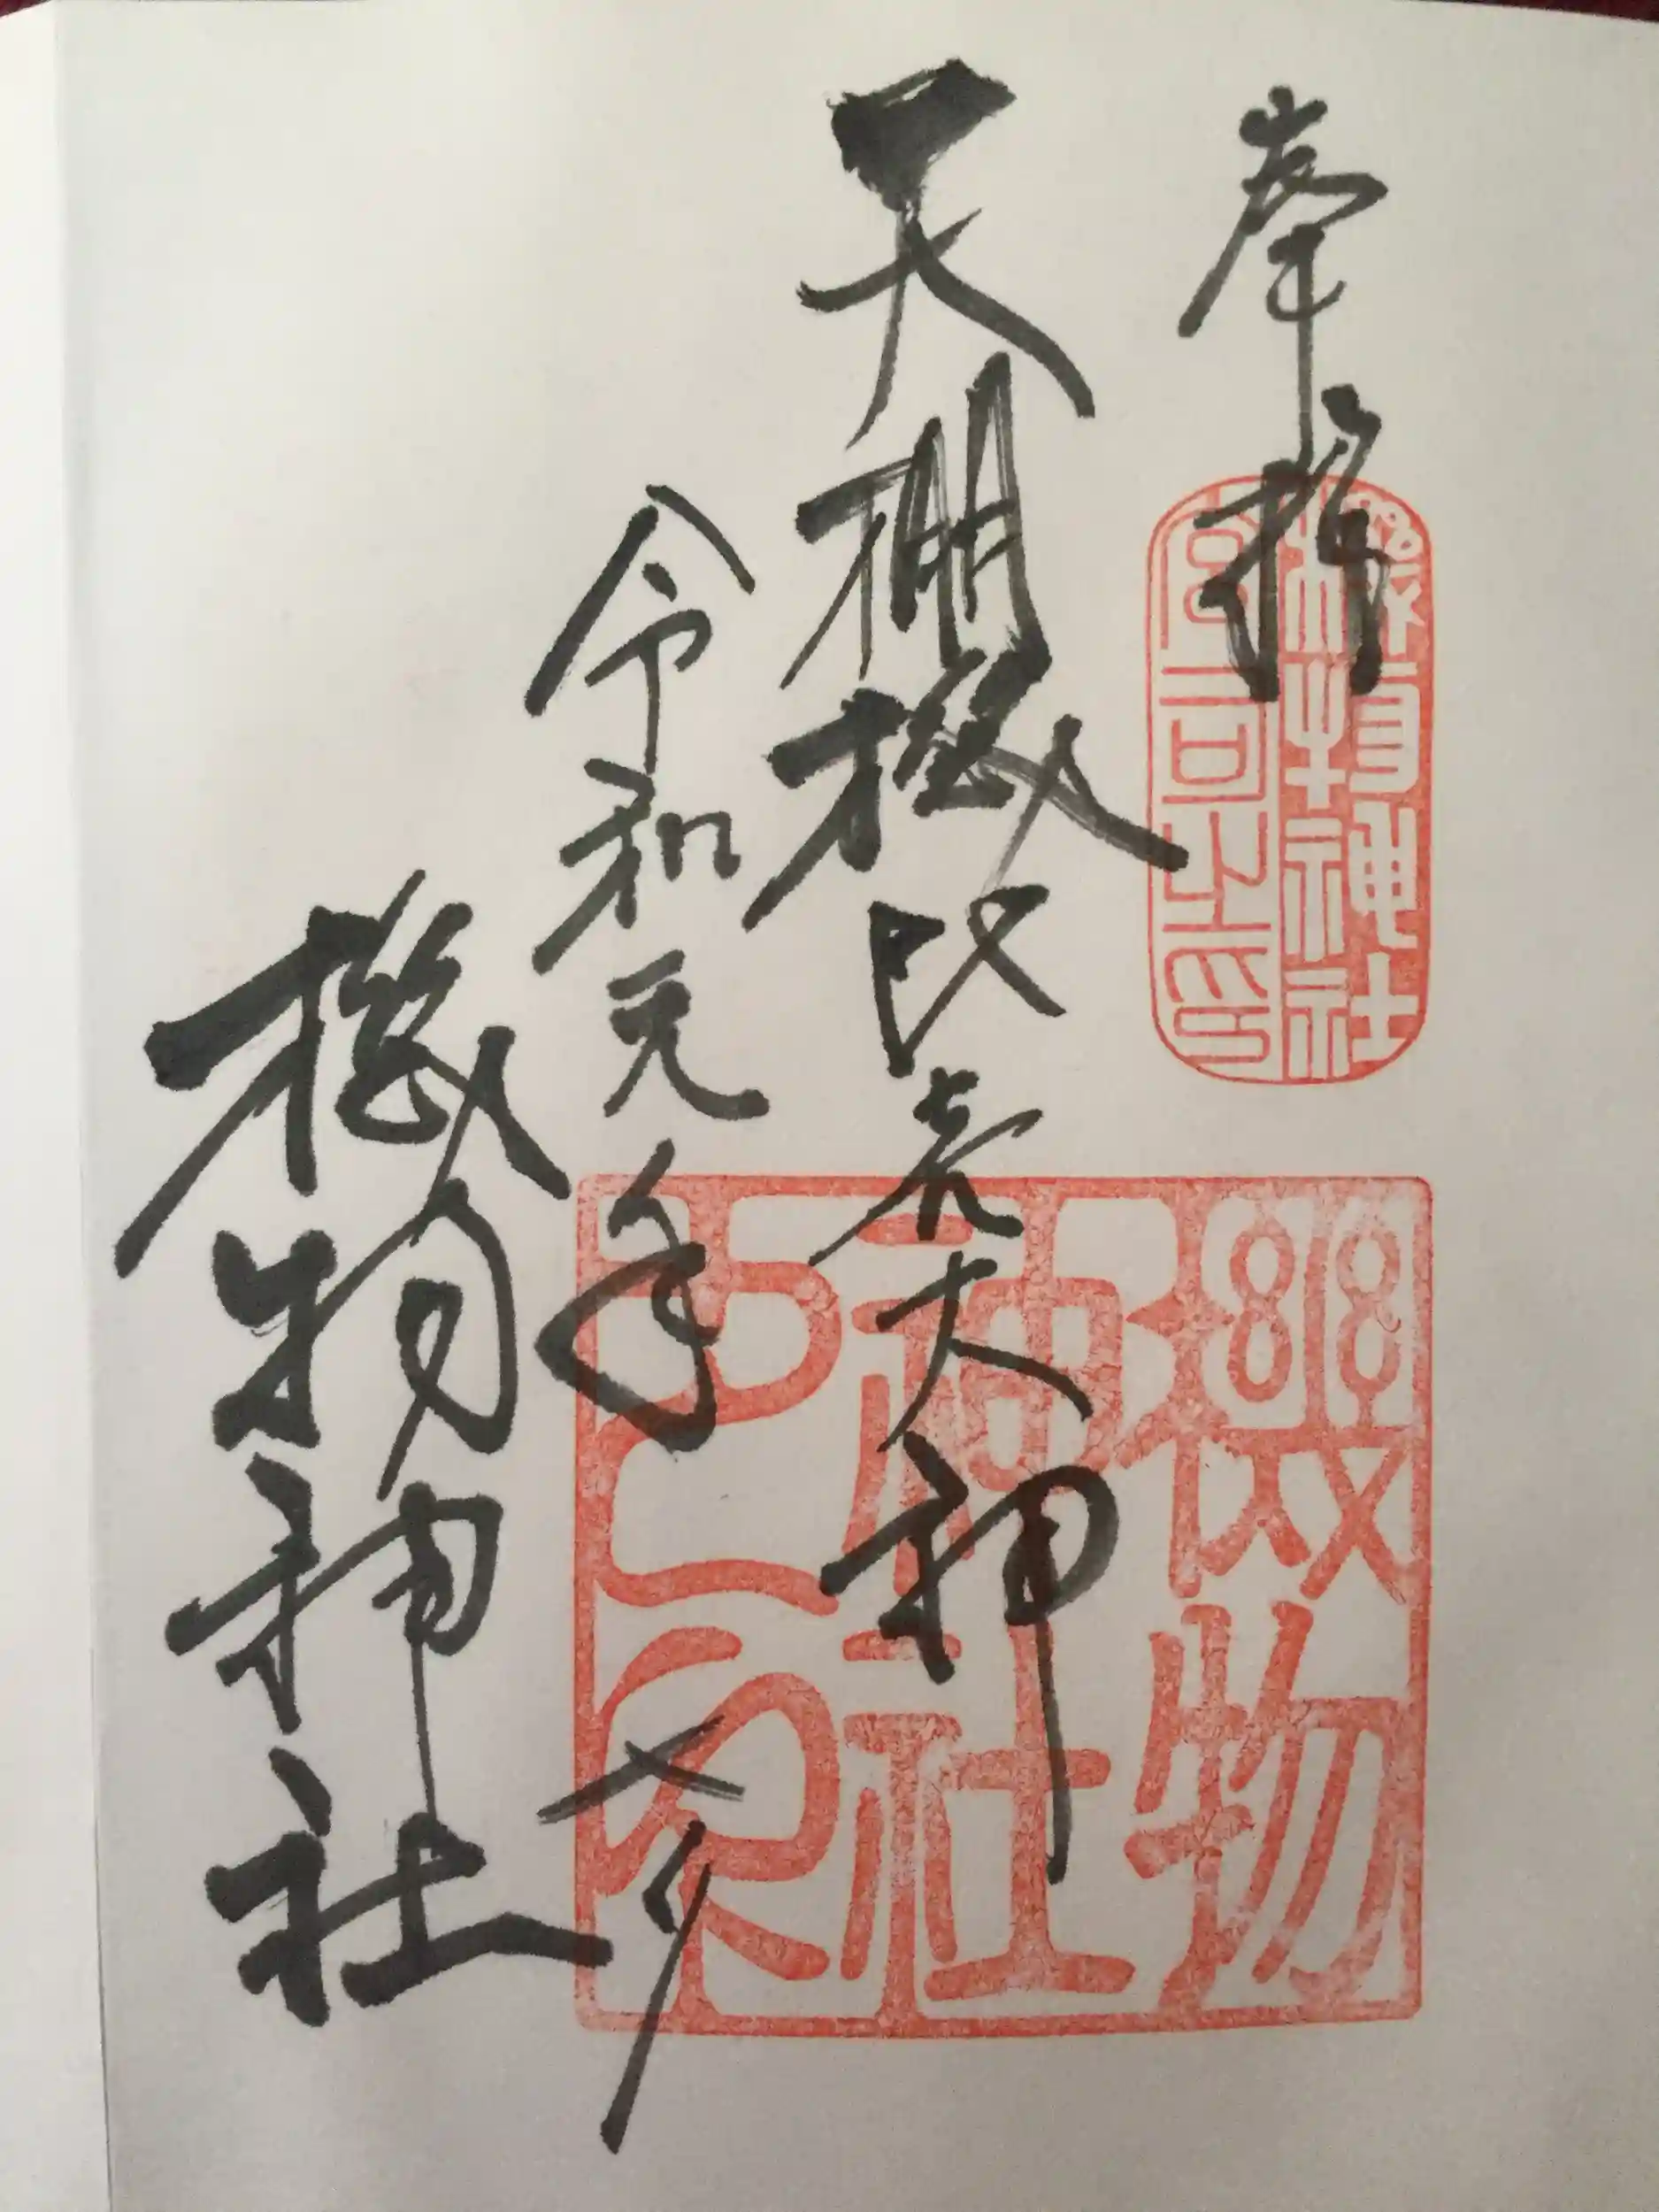 奉拝
機物神社
宮司之印
天棚機比売大神
令和元年七夕
機物神社
機物
神社